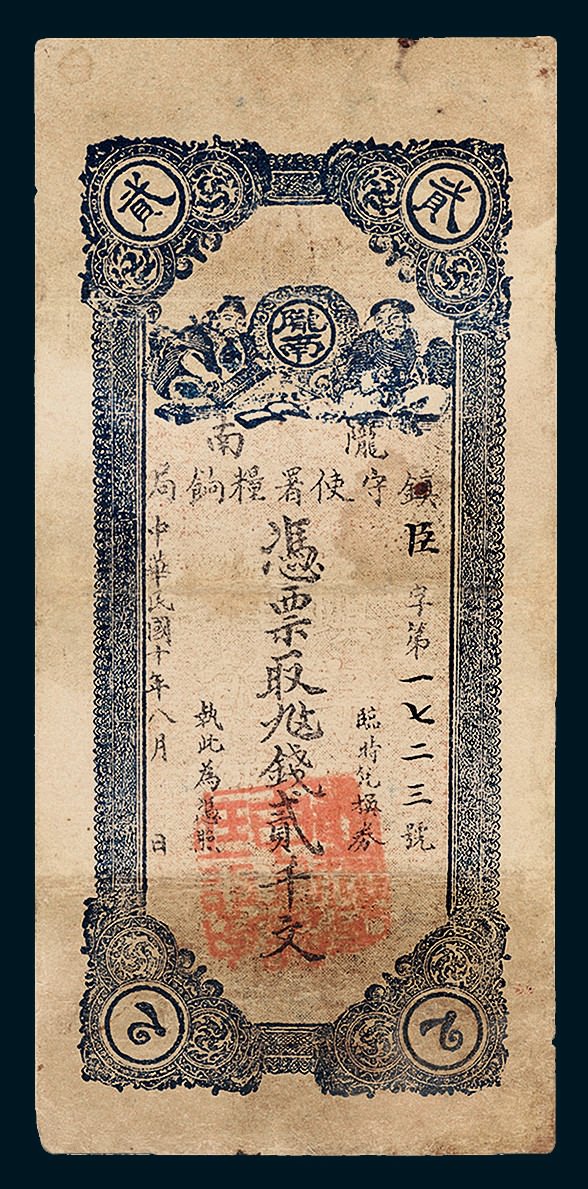 貳
貳
隴南
隴南
鎮守使署糧餉局
臣字第一七二三號
臨時兌換券
憑票取錢貳千文
執此為憑照
中華民國十年八月 日
2
2